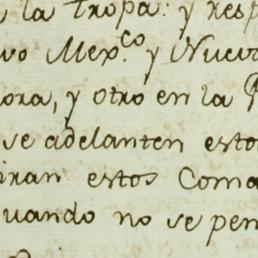 la tropa: y resp
vo Mex.co y Nuev
ora, y otro en la P
se adelanten esto
iran estos Coma
uando no se pen